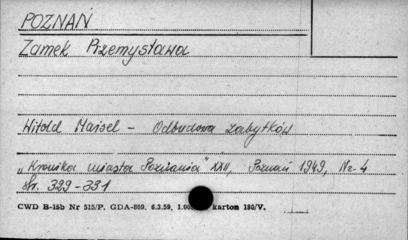 POZNAŃ
Zamek Przemysława
Witold Maisel - Odbudowa zabytków
„Kronika miasta Poznania" XXII, Poznań 1949, Nr. 4
str. 329-331
CWD B-15b Nr 515/P. GDA-869. 6.3.59, karton 180/V.